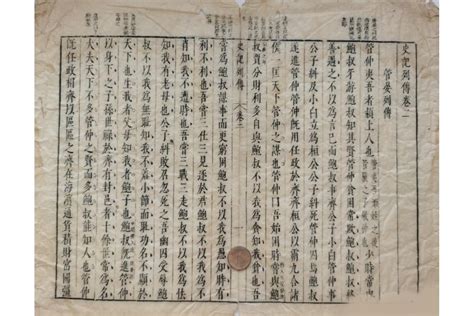 史記列傳卷
管晏列傳
管仲夷吾者潁上人也少時常與
鮑叔牙游鮑叔知其賢管仲貧困常欺鮑叔鮑叔終
善遇之不以為言已而鮑叔事齊公子小白管仲事
公子糾及小白立為桓公公子糾死管仲囚焉鮑叔
遂進管仲管仲既用任政於齊齊桓公以霸九合諸
侯一匡天下管仲之謀也管仲曰吾始困時嘗與鮑
叔賈分財利多自與鮑叔不以我為貪知我貧也吾
史記列傳 卷
嘗為鮑叔謀事而更窮困鮑叔不以我為愚知時有
利不利也吾嘗三仕三見逐於君鮑叔不以我為不
肖知我不遭時也吾嘗三戰三走鮑叔不以我為怯
知我有老母也公子糾敗召忽死之吾幽囚受辱鮑
叔不以我為無恥知我不羞小節而羞功名不顯于
天下也生我者父母知我者鮑子也鮑叔既進管仲
以身下之子孫世祿於齊有封邑者十餘世常為名
大夫天下不多管仲之賢而多鮑叔能知人也管仲
既任政相齊以區區之齊在海濱通貨積財富國彊